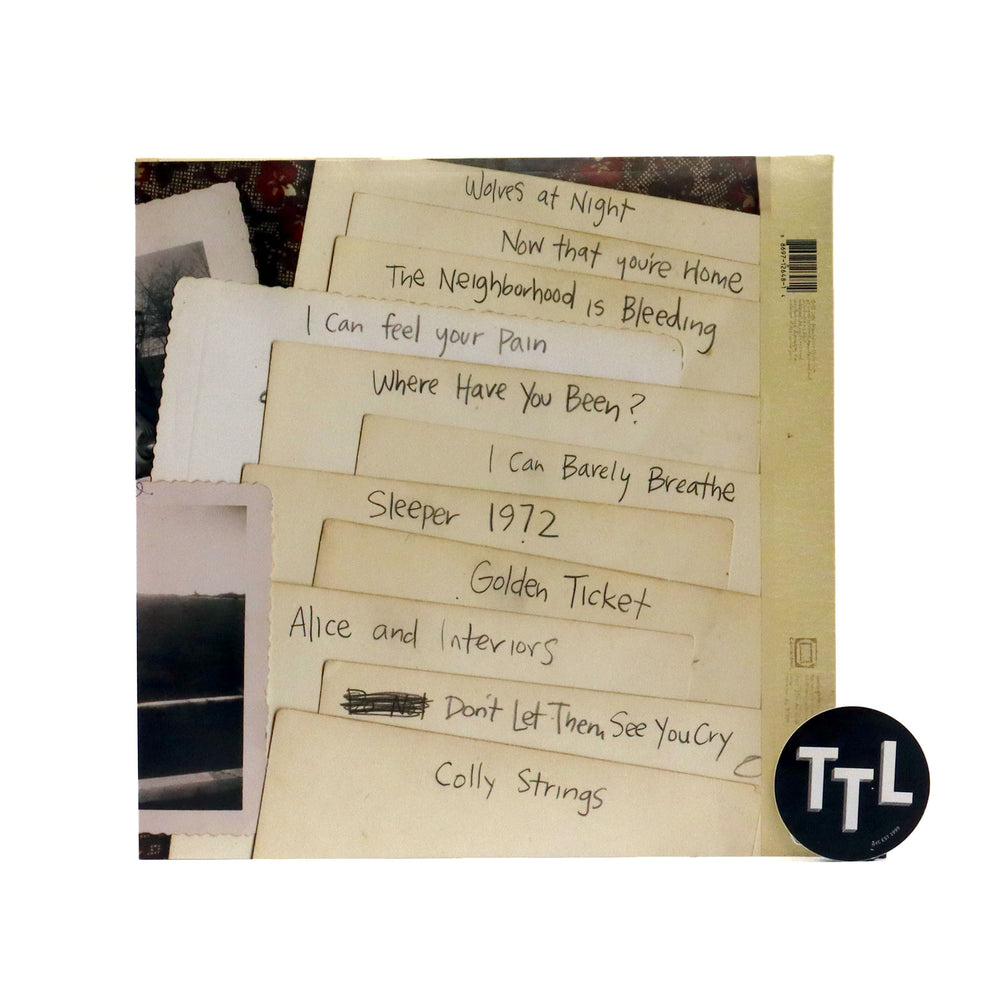 Wolves at Night
Now that you're Home
The Neighborhood is Bleeding
I Can feel your Pain
Where Have You Been?
I Can Barely Breathe
Sleeper 1972
Golden Ticket
Alice and Interiors
Don't Let Them See You Cry
Colly Strings
TTL